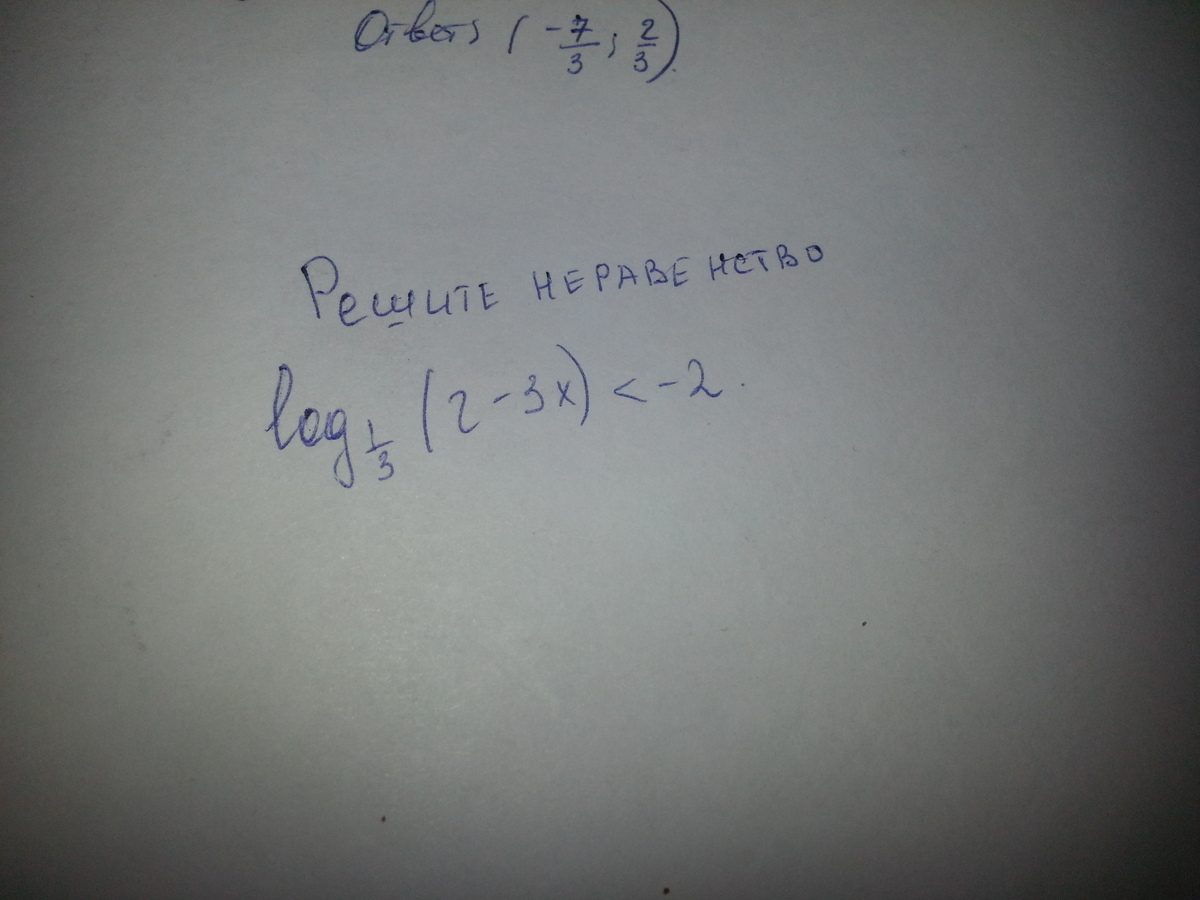 Ответ: (-7/3; 2/3).
Решите неравенство
log_{1/3} (2-3x) < -2.